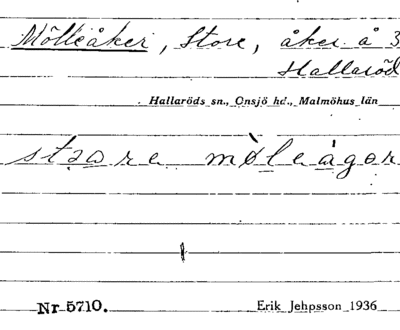 Mölleåker, Store, åker å 3
Hallaröd
Hallaröds sn., Onsjö hd., Malmöhus län
stɔara møleågər
Nr 5710.
Erik Jehpsson 1936